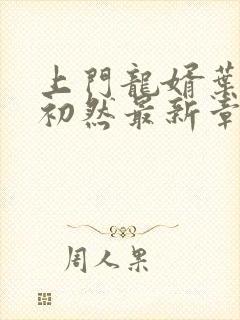 上門龍婿葉
初然最新章
周人果